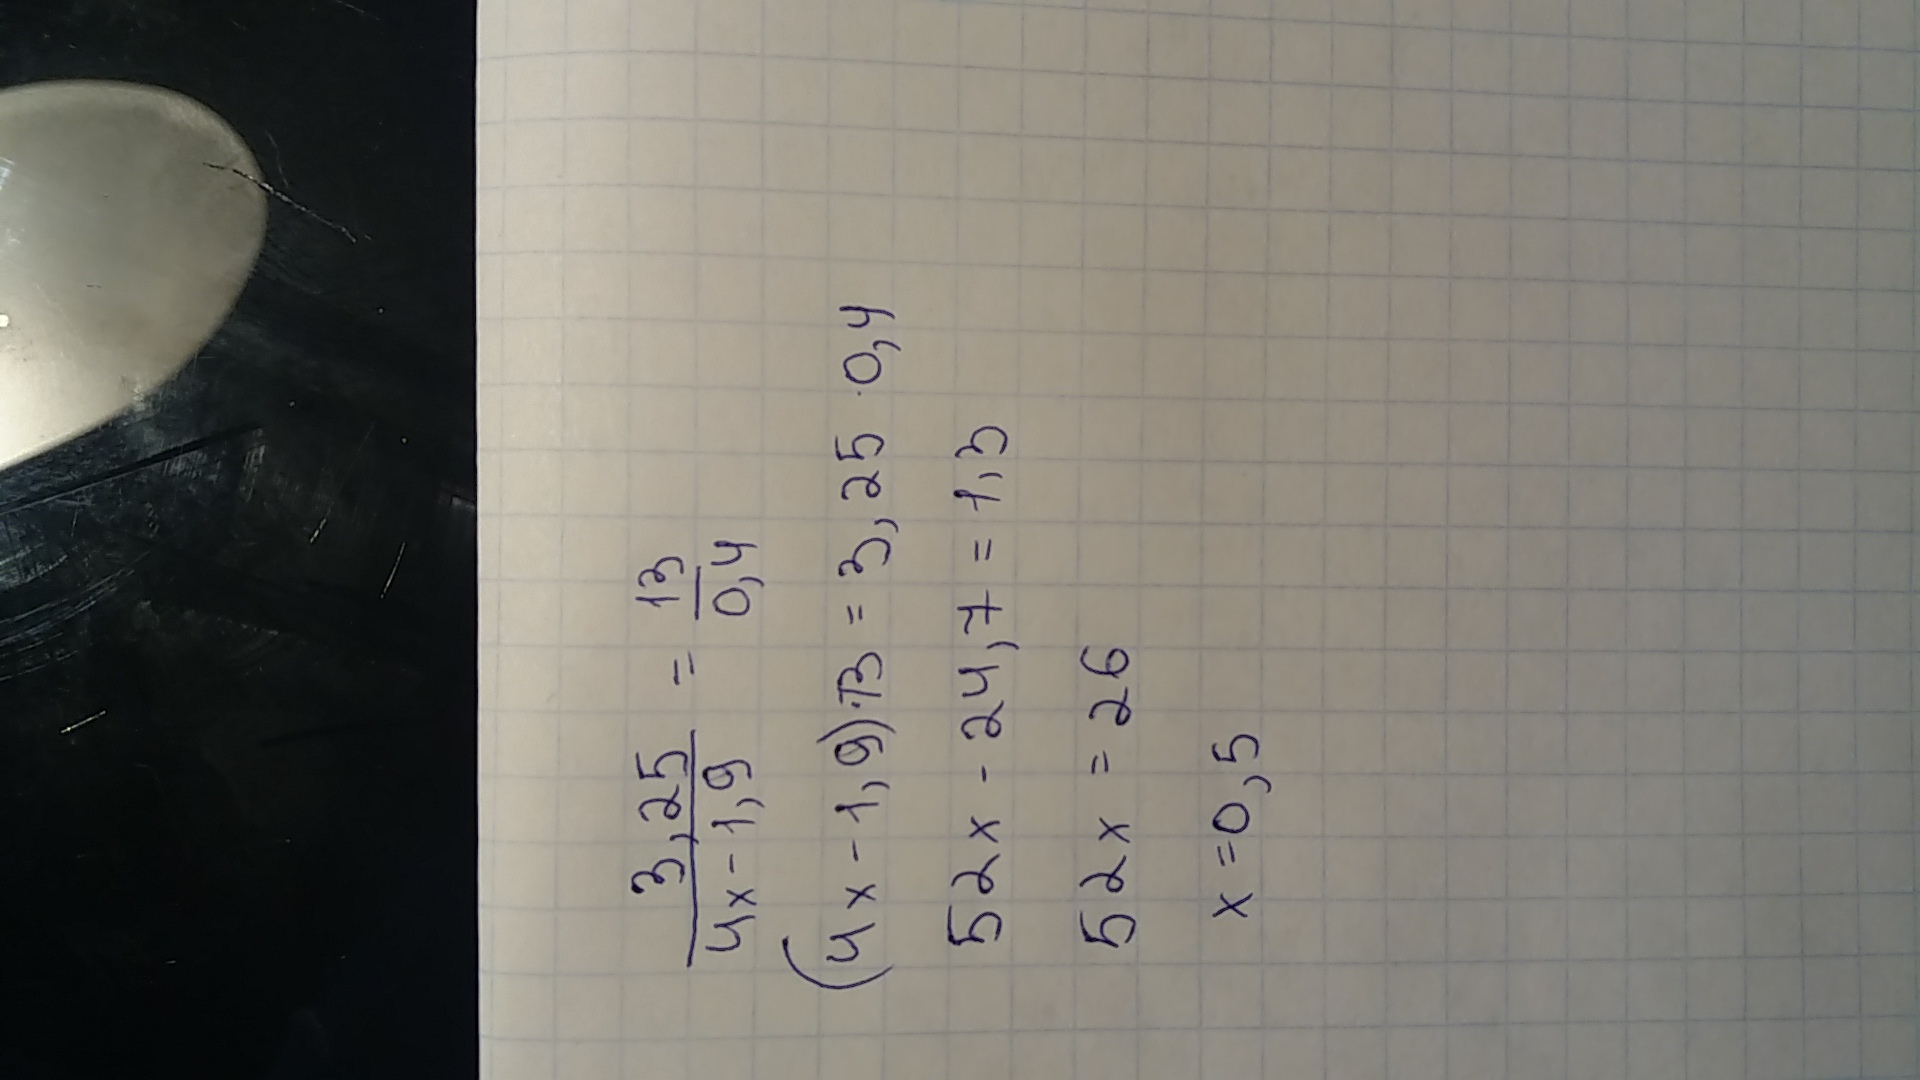 3,25 / 4x - 1,9 = 13 / 0,4
(4x - 1,9)·13 = 3,25 · 0,4
52x - 24,7 = 1,3
52x = 26
x = 0,5